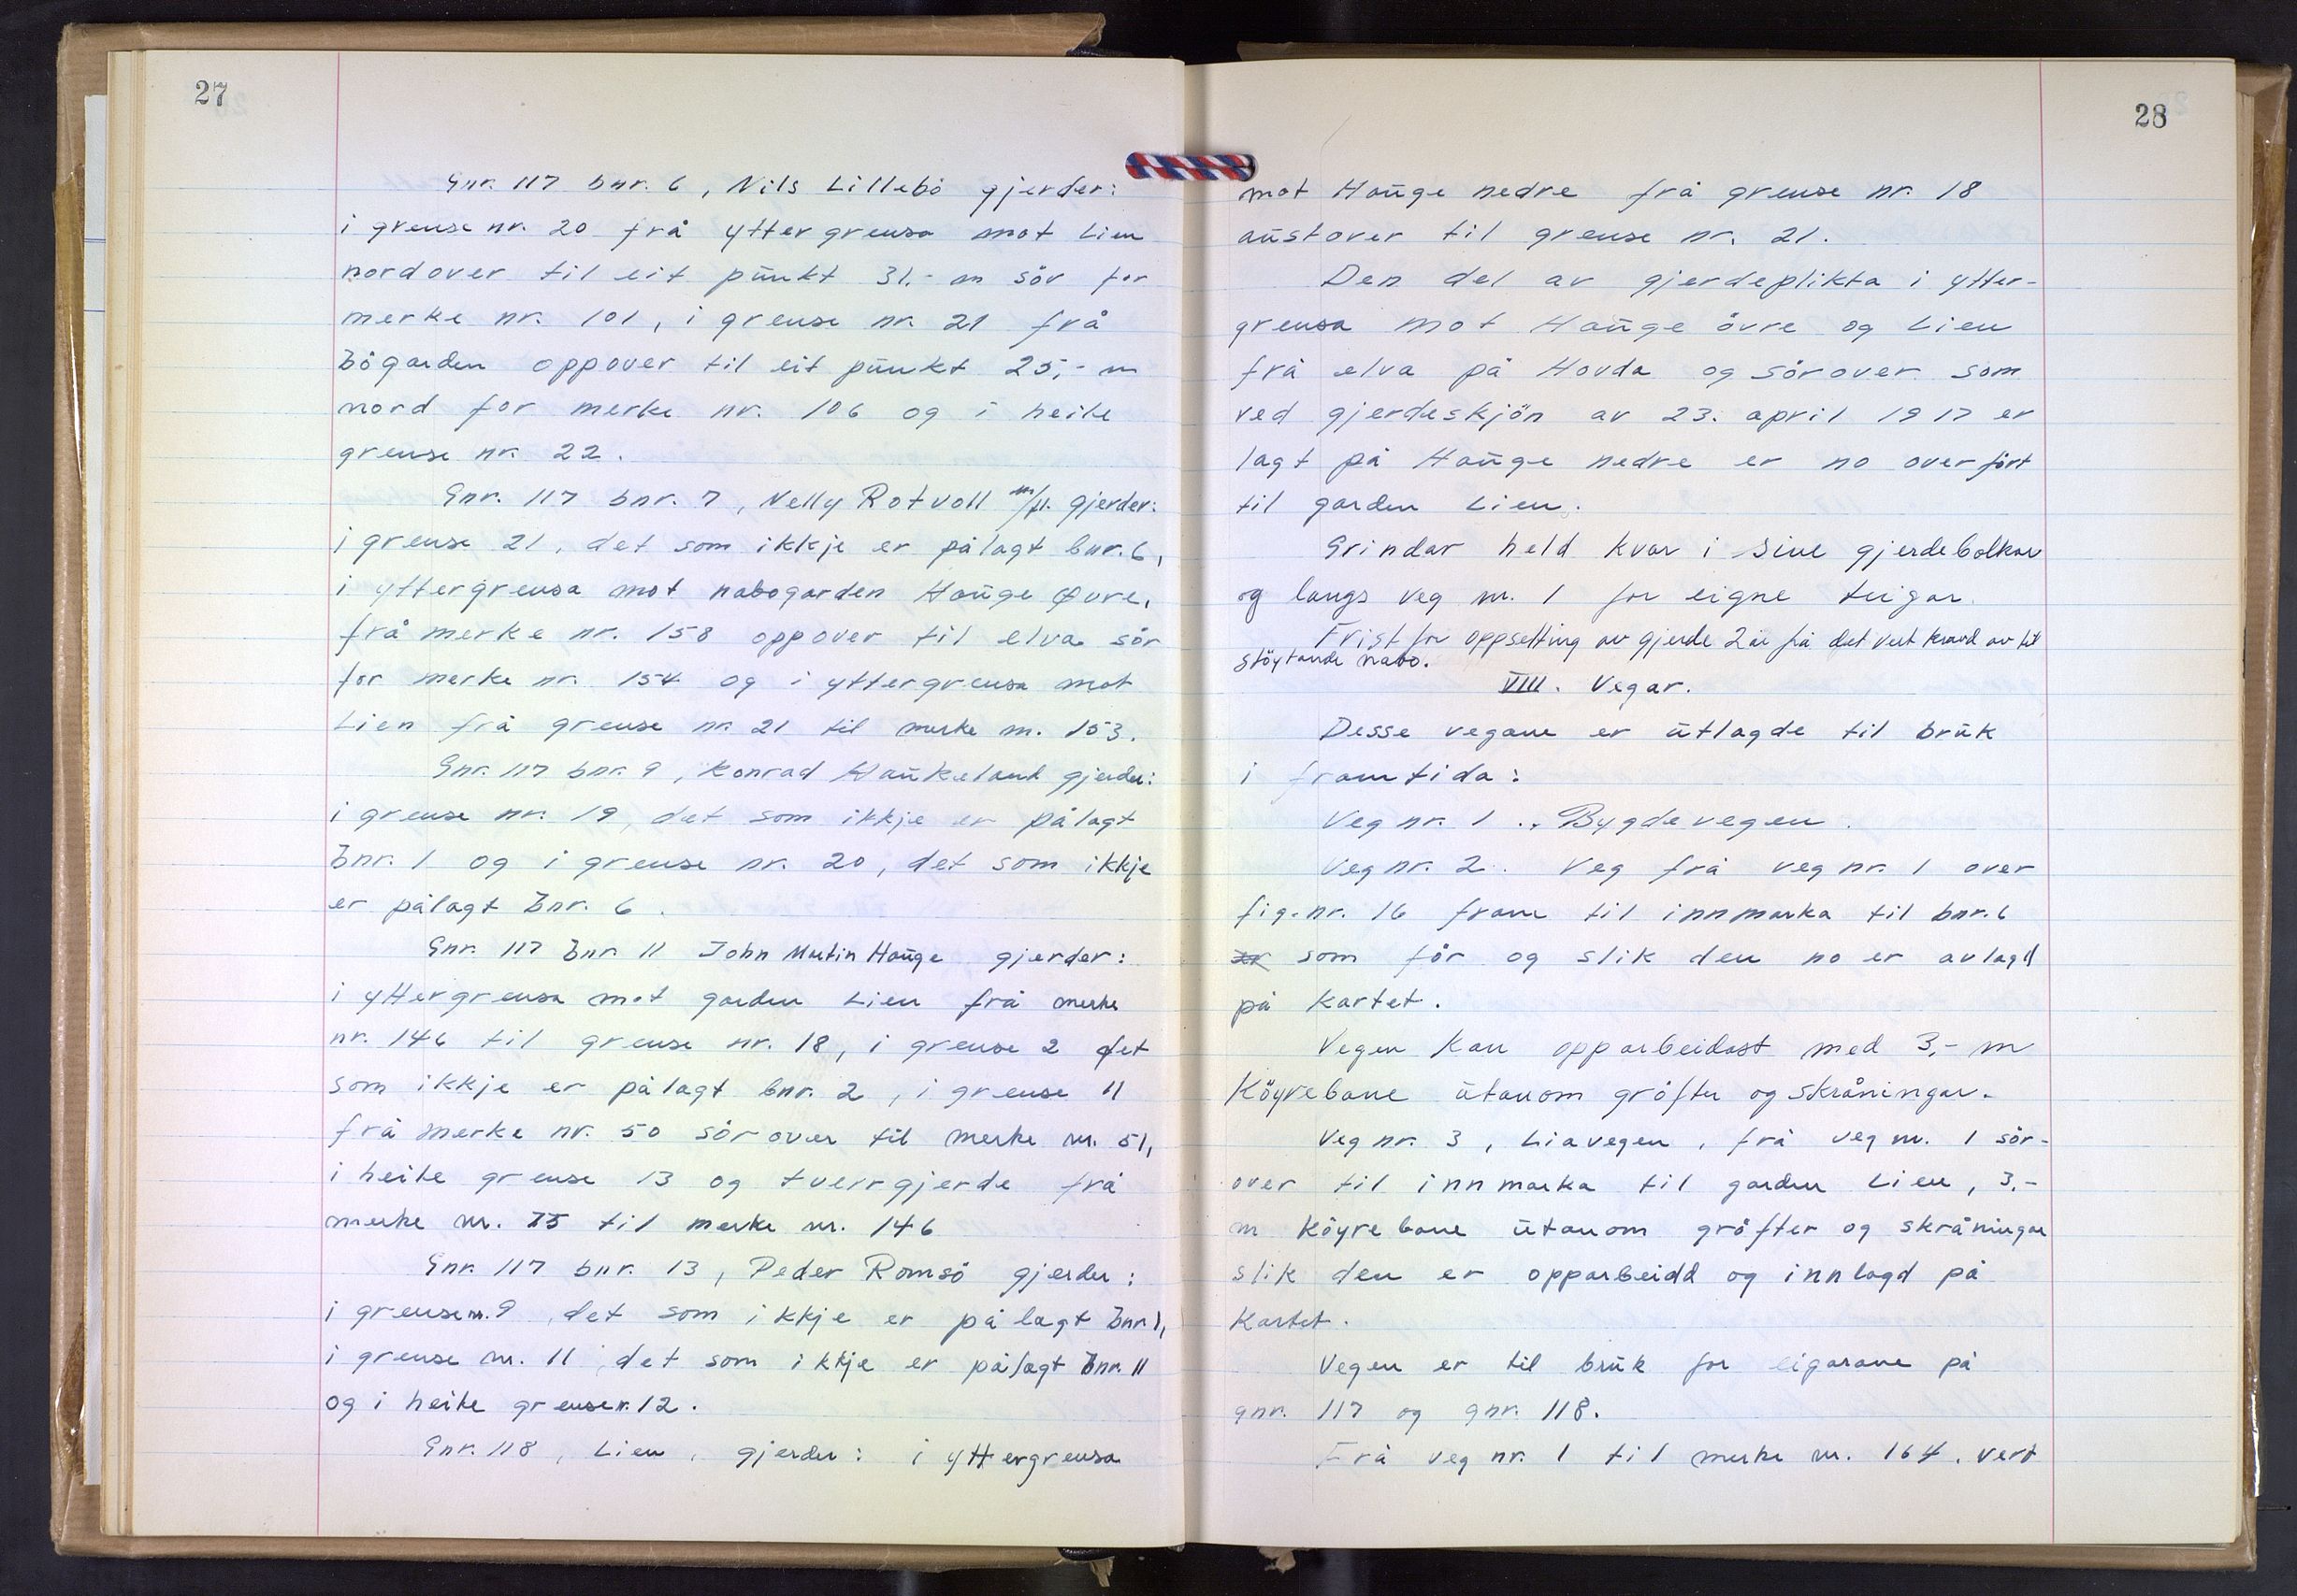 27
Gnr. 117 bnr. 6, Nils Lillebö gjerder:
i grense nr. 20 frå yttergrensa mot Lien
nordover til eit punkt 31.- m sör for
merke nr. 101, i grense nr. 21 frå
bögarden oppover til eit punkt 25,- m
nord for merke nr. 106 og i heile
grense nr. 22.
Gnr. 117 bnr. 7, Nelly Rotvoll m/fl. gjerder:
i grense 21, det som ikkje er pålagt bnr. 6,
i yttergrensa mot nabogarden Hauge Øvre,
frå merke nr. 158 oppover til elva sör
for merke nr. 154 og i yttergrensa mot
Lien frå grense nr. 21 til merke nr. 153.
Gnr. 117 bnr. 9, Konrad Haukeland gjerder:
i grense nr. 19, det som ikkje er pålagt
bnr. 1 og i grense nr. 20, det som ikkje
er pålagt bnr. 6.
Gnr. 117 bnr. 11 John Martin Hauge gjerder:
i yttergrensa mot garden Lien frå merke
nr. 146 til grense nr. 18, i grense 2 det
som ikkje er pålagt bnr. 2, i grense 11
frå merke nr. 50 sörover til merke nr. 51,
i heile grense 13 og tverrgjerde frå
merke nr. 75 til merke nr. 146
Gnr. 117 bnr. 13, Peder Romsö gjerder:
i grense nr. 9, det som ikkje er pålagt bnr. 1,
i grense nr. 11, det som ikkje er pålagt bnr. 11
og i heile grense nr. 12.
Gnr. 118, Lien, gjerder: i yttergrensa
28
mot Hauge nedre frå grense nr. 18
austover til grense nr. 21.
Den del av gjerdeplikta i ytter-
grensa mot Hauge övre og Lien
frå elva på Hovda og sörover som
ved gjerdeskjön av 23. april 1917 er
lagt på Hauge nedre er no overfört
til garden Lien.
Grindar held kvar i sine gjerdebolkar
og langs veg nr. 1 for eigne teigar.
Frist for oppsetting av gjerde 2 år frå det vert kravd av til
stöytande nabo.
VIII. Vegar.
Desse vegane er utlagde til bruk
i framtida:
Veg nr. 1 .. Bygdevegen.
Veg nr. 2. Veg frå veg nr. 1 over
fig. nr. 16 fram til innmarka til bnr. 6
som för og slik den no er avlagd
på kartet.
Vegen kan opparbeidast med 3,- m
Köyrebane utanom gröfter og skråningar.
Veg nr. 3, Liavegen, frå veg nr. 1 sör-
over til innmarka til garden Lien, 3,-
m köyrebane utanom gröfter og skråningar
slik den er opparbeidd og innlagd på
kartet.
Vegen er til bruk for eigarane på
gnr. 117 og gnr. 118.
Frå veg nr. 1 til merke nr. 164, vert